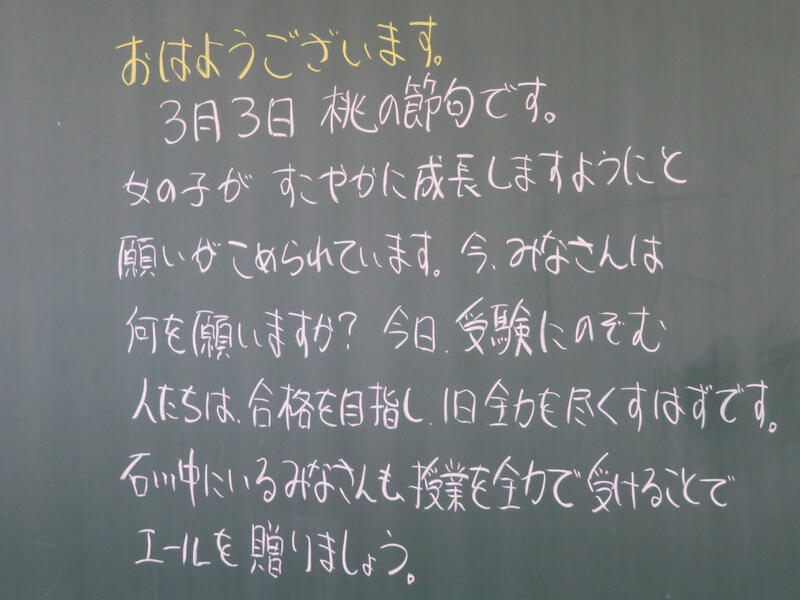 おはようございます。
3月3日 桃の節句です。
女の子が すこやかに成長しますようにと
願いがこめられています。今、みなさんは
何を願いますか? 今日、受験にのぞむ
人たちは、合格を目指し、1日全力を尽くすはずです。
石川中にいるみなさんも、授業を全力で受けることで
エールを贈りましょう。